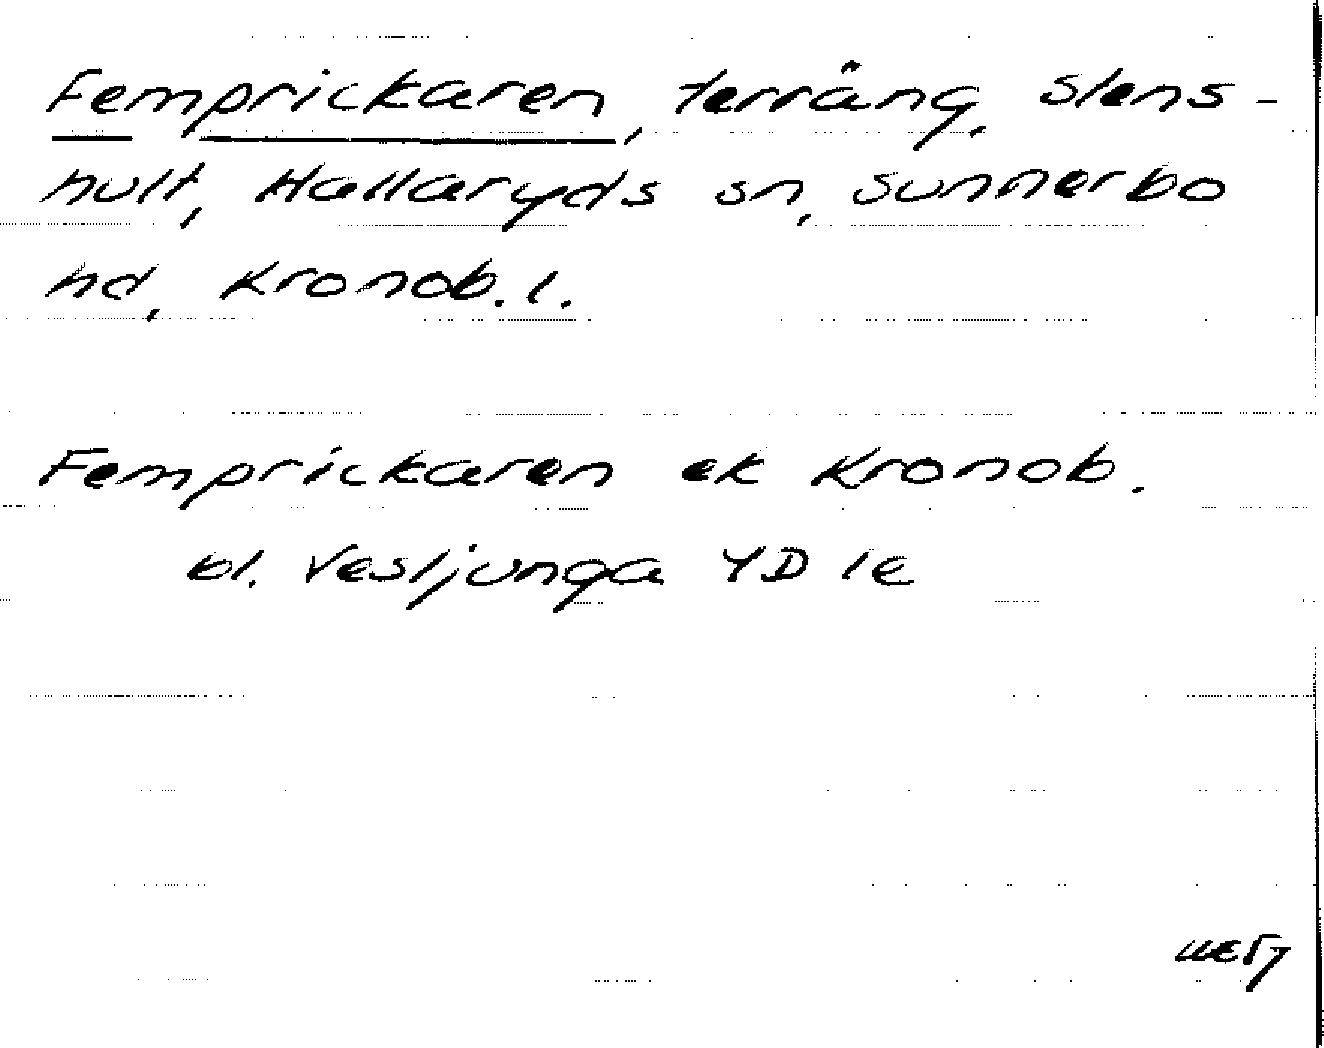 Femprickaren, terräng, Stens-
hult, Hallaryds sn, Sunnerbo
hd, Kronob. l.
Femprickaren ek Kronob.
bl. Vesljunga 4D 1e